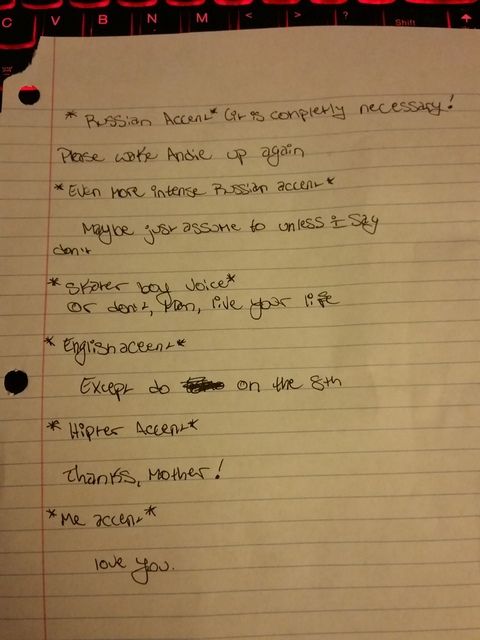 C V B N M < > ? Shift
*Russian Accent* (it is completly necessary!
Please wake Andie up again
*Even more intense Russian accent*
Maybe just assume to unless I say
don't
*Skater boy voice*
Or dont, man, live your life
*English accent*
Except do on the 8th
*Hipter Accent*
Thanks, Mother!
*Me accent*
love you.